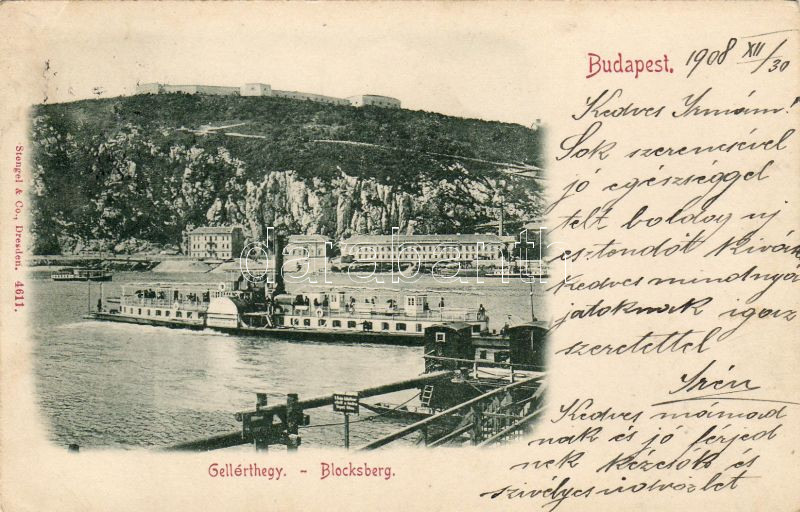 Budapest. 1908 XII/30
Kedves Irmám!
Sok szerencsével
jó egészséggel
telt boldog uj
esztendőt Kivánok
Kedves mindnyá
jatoknak igaz
szeretettel
Irén
Kedves mámád
nak és jó férjed
nek kézcsók és
szivélyes üdvözlet
Stengel & Co., Dresden. 4611.
darabanth.com
Gellérthegy. - Blocksberg.